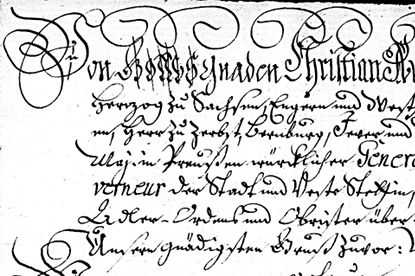 Von GOTTES Gnaden Christian Au
Hertzog zu Sachsen, Engern und West
en, Herr zu Zerbst, Bernburg, Jever und
Maj. in Preußen würcklicher Genera
verneur der Stadt und Veste Stettin,
Adler-Ordens und Obrister über
Unsern gnädigsten Gruß zuvor: